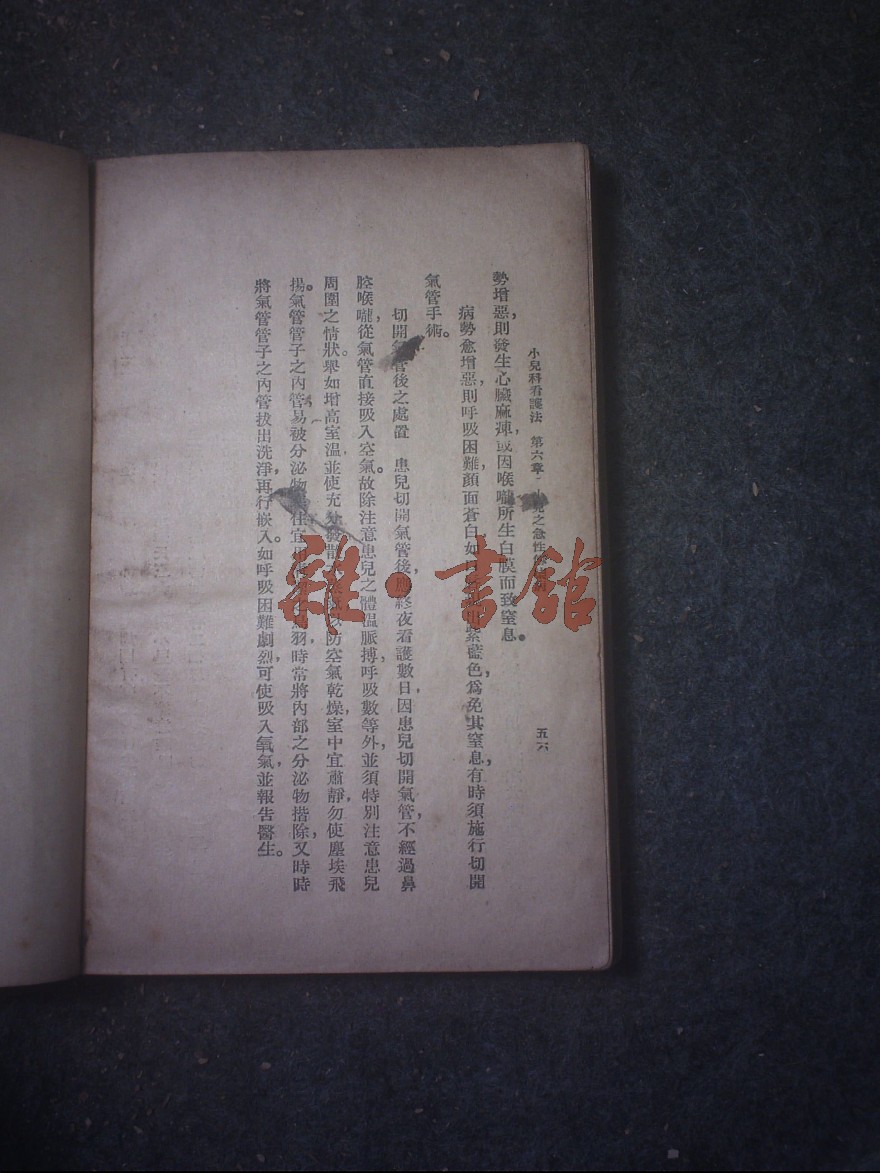 小兒科看護法　第六章　小兒之急性
五六
勢增惡，則發生心臟麻痺，或因喉嚨所生白膜而致窒息。
病勢愈增惡，則呼吸困難，顏面蒼白如紫藍色，爲免其窒息，有時須施行切開
氣管手術。
切開氣管後之處置　患兒切開氣管後，應終夜看護數日，因患兒切開氣管，不經過鼻
腔喉嚨，從氣管直接吸入空氣。故除注意患兒之體溫脈搏，呼吸數等外，並須特別注意患兒
周圍之情狀。舉如增高室溫，並使充分發散防空氣乾燥，室中宜肅靜，勿使塵埃飛
揚。氣管管子之內管，易被分泌物住，宜用羽，時常將內部之分泌物揩除，又時時
將氣管管子之內管拔出洗淨，再行嵌入。如呼吸困難劇烈，可使吸入氧氣，並報告醫生。
雜·書館